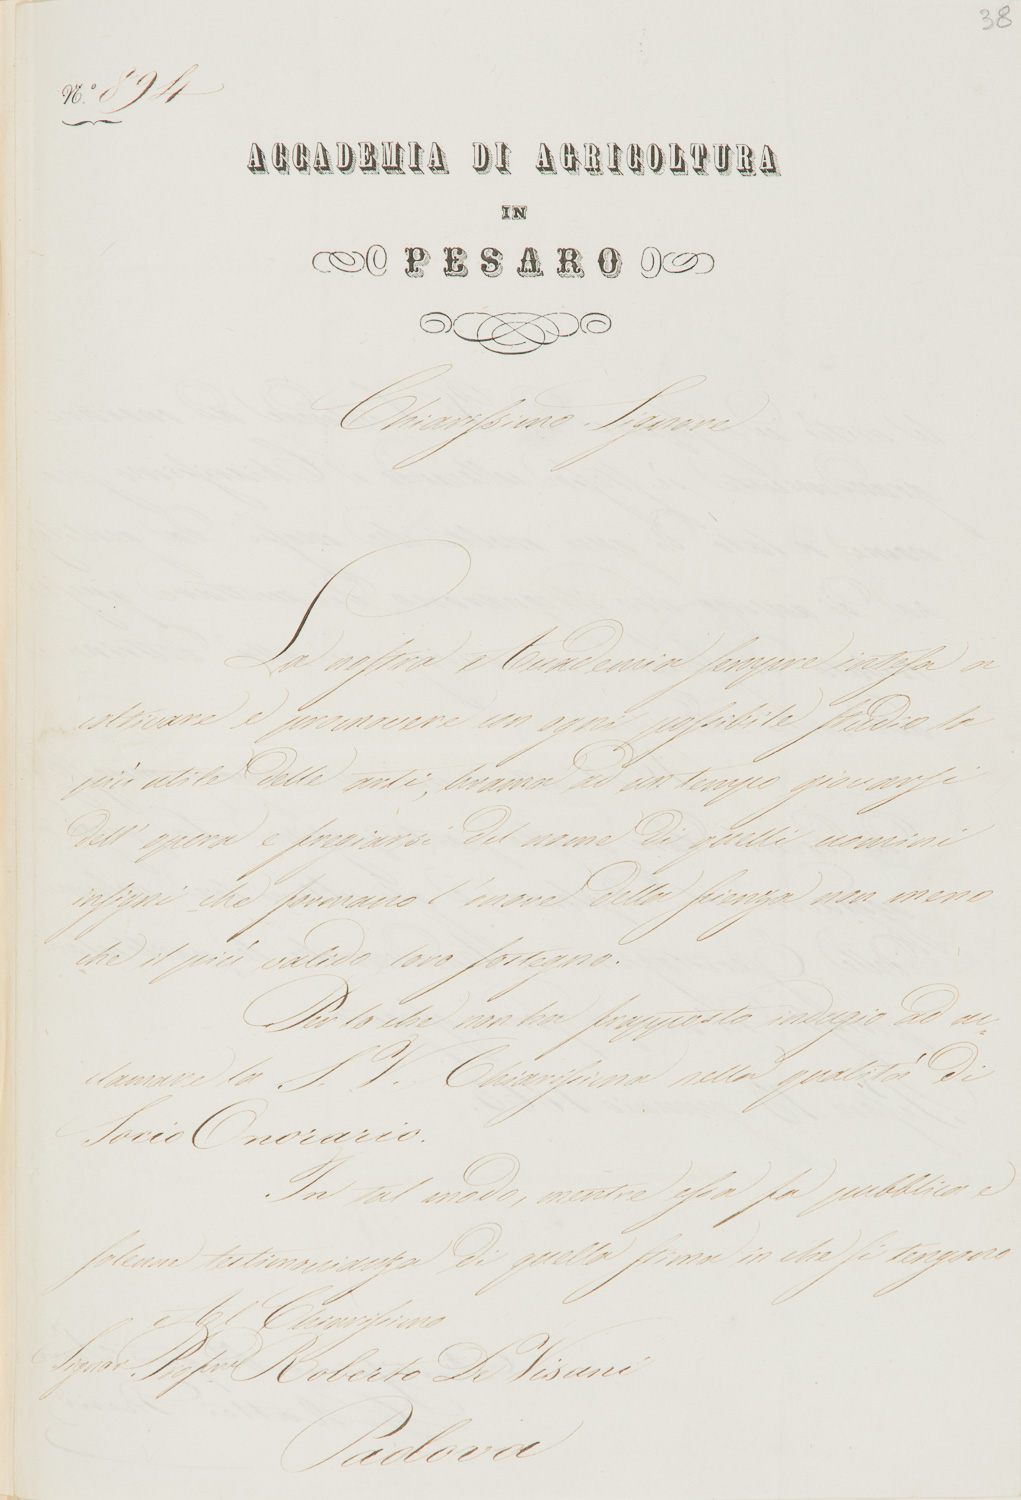 38
N.º 894
ACCADEMIA DI AGRICOLTURA
IN
PESARO
Chiarissimo Signore
La nostra Accademia sempre intesa a
coltivare e promovere con ogni possibile studio la
più utile delle arti, brama ad un tempo giovarsi
dell' opera e fregiarsi del nome di quelli uomini
insigni che formano l' onore della scienza non meno
che il più valido loro sostegno.
Per lo che non ha frapposto indugio ad ac-
clamare la S. V. Chiarissima nella qualità di
Socio Onorario.
In tal modo, mentre essa fa pubblica e
solenne testimonianza di quella stima in che si tengono
Al Chiarissimo
Signor Profre Roberto De Visiani
Padova